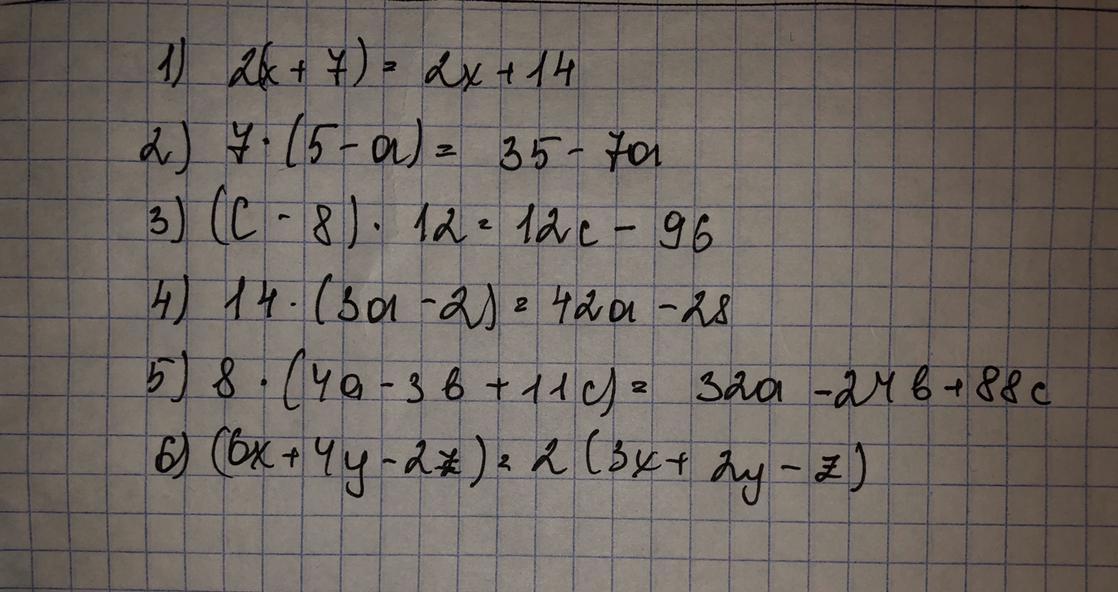 1) 2(x + 7) = 2x + 14
2) 7 · (5 - a) = 35 - 7a
3) (c - 8) · 12 = 12c - 96
4) 14 · (3a - 2) = 42a - 28
5) 8 · (4a - 3b + 11c) = 32a - 24b + 88c
6) (6x + 4y - 2z) = 2 (3x + 2y - z)